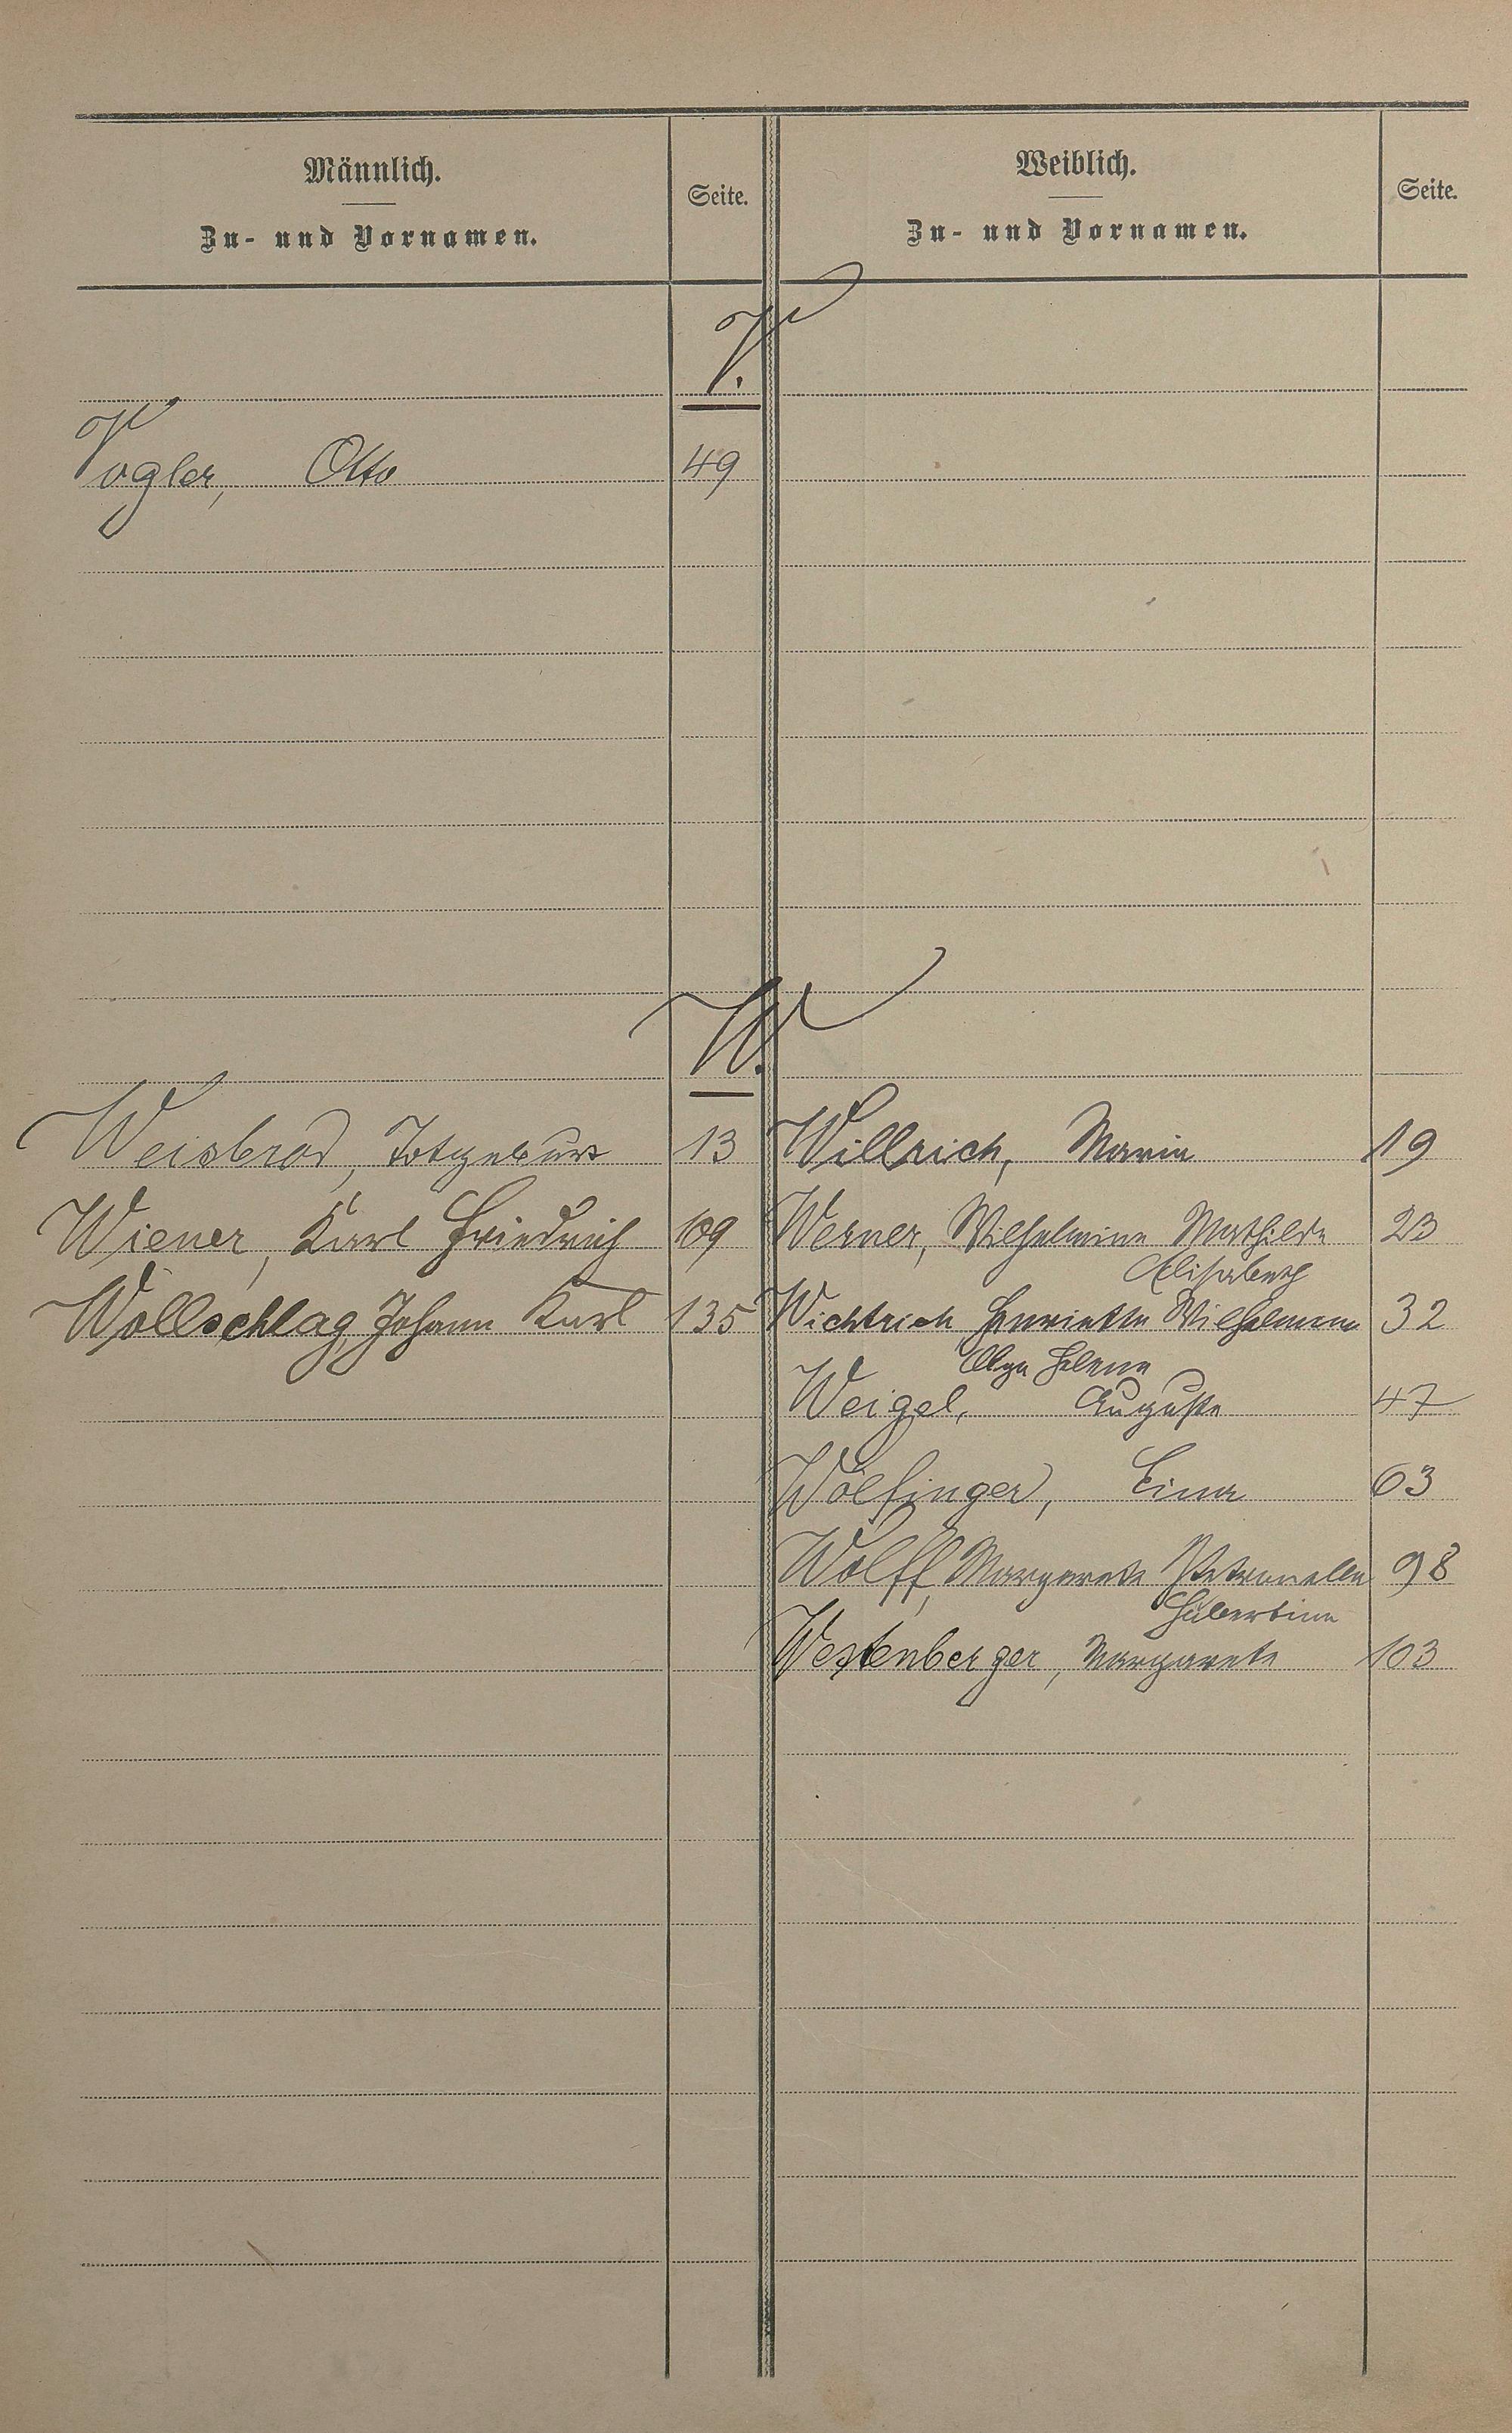 Männlich.
Zu- und Vornamen.
Seite.
Weiblich.
Zu- und Vornamen.
Seite.
V.
Vogler, Otto 49
W.
Weisbrod, Totgeburt 13
Willrich, Maria 19
Wiener, Karl Friedrich 109
Werner, Wilhelmine Mathilde 23
Elisabeth
Wollschlag, Johann Karl 135
Wichtrich Henriette Wilhelmine 32
Olga Helene
Weigel, Auguste 47
Wölfinger, Lina 63
Wolff, Margareta Petronella 98
Hubertine
Westenberger, Margareta 103